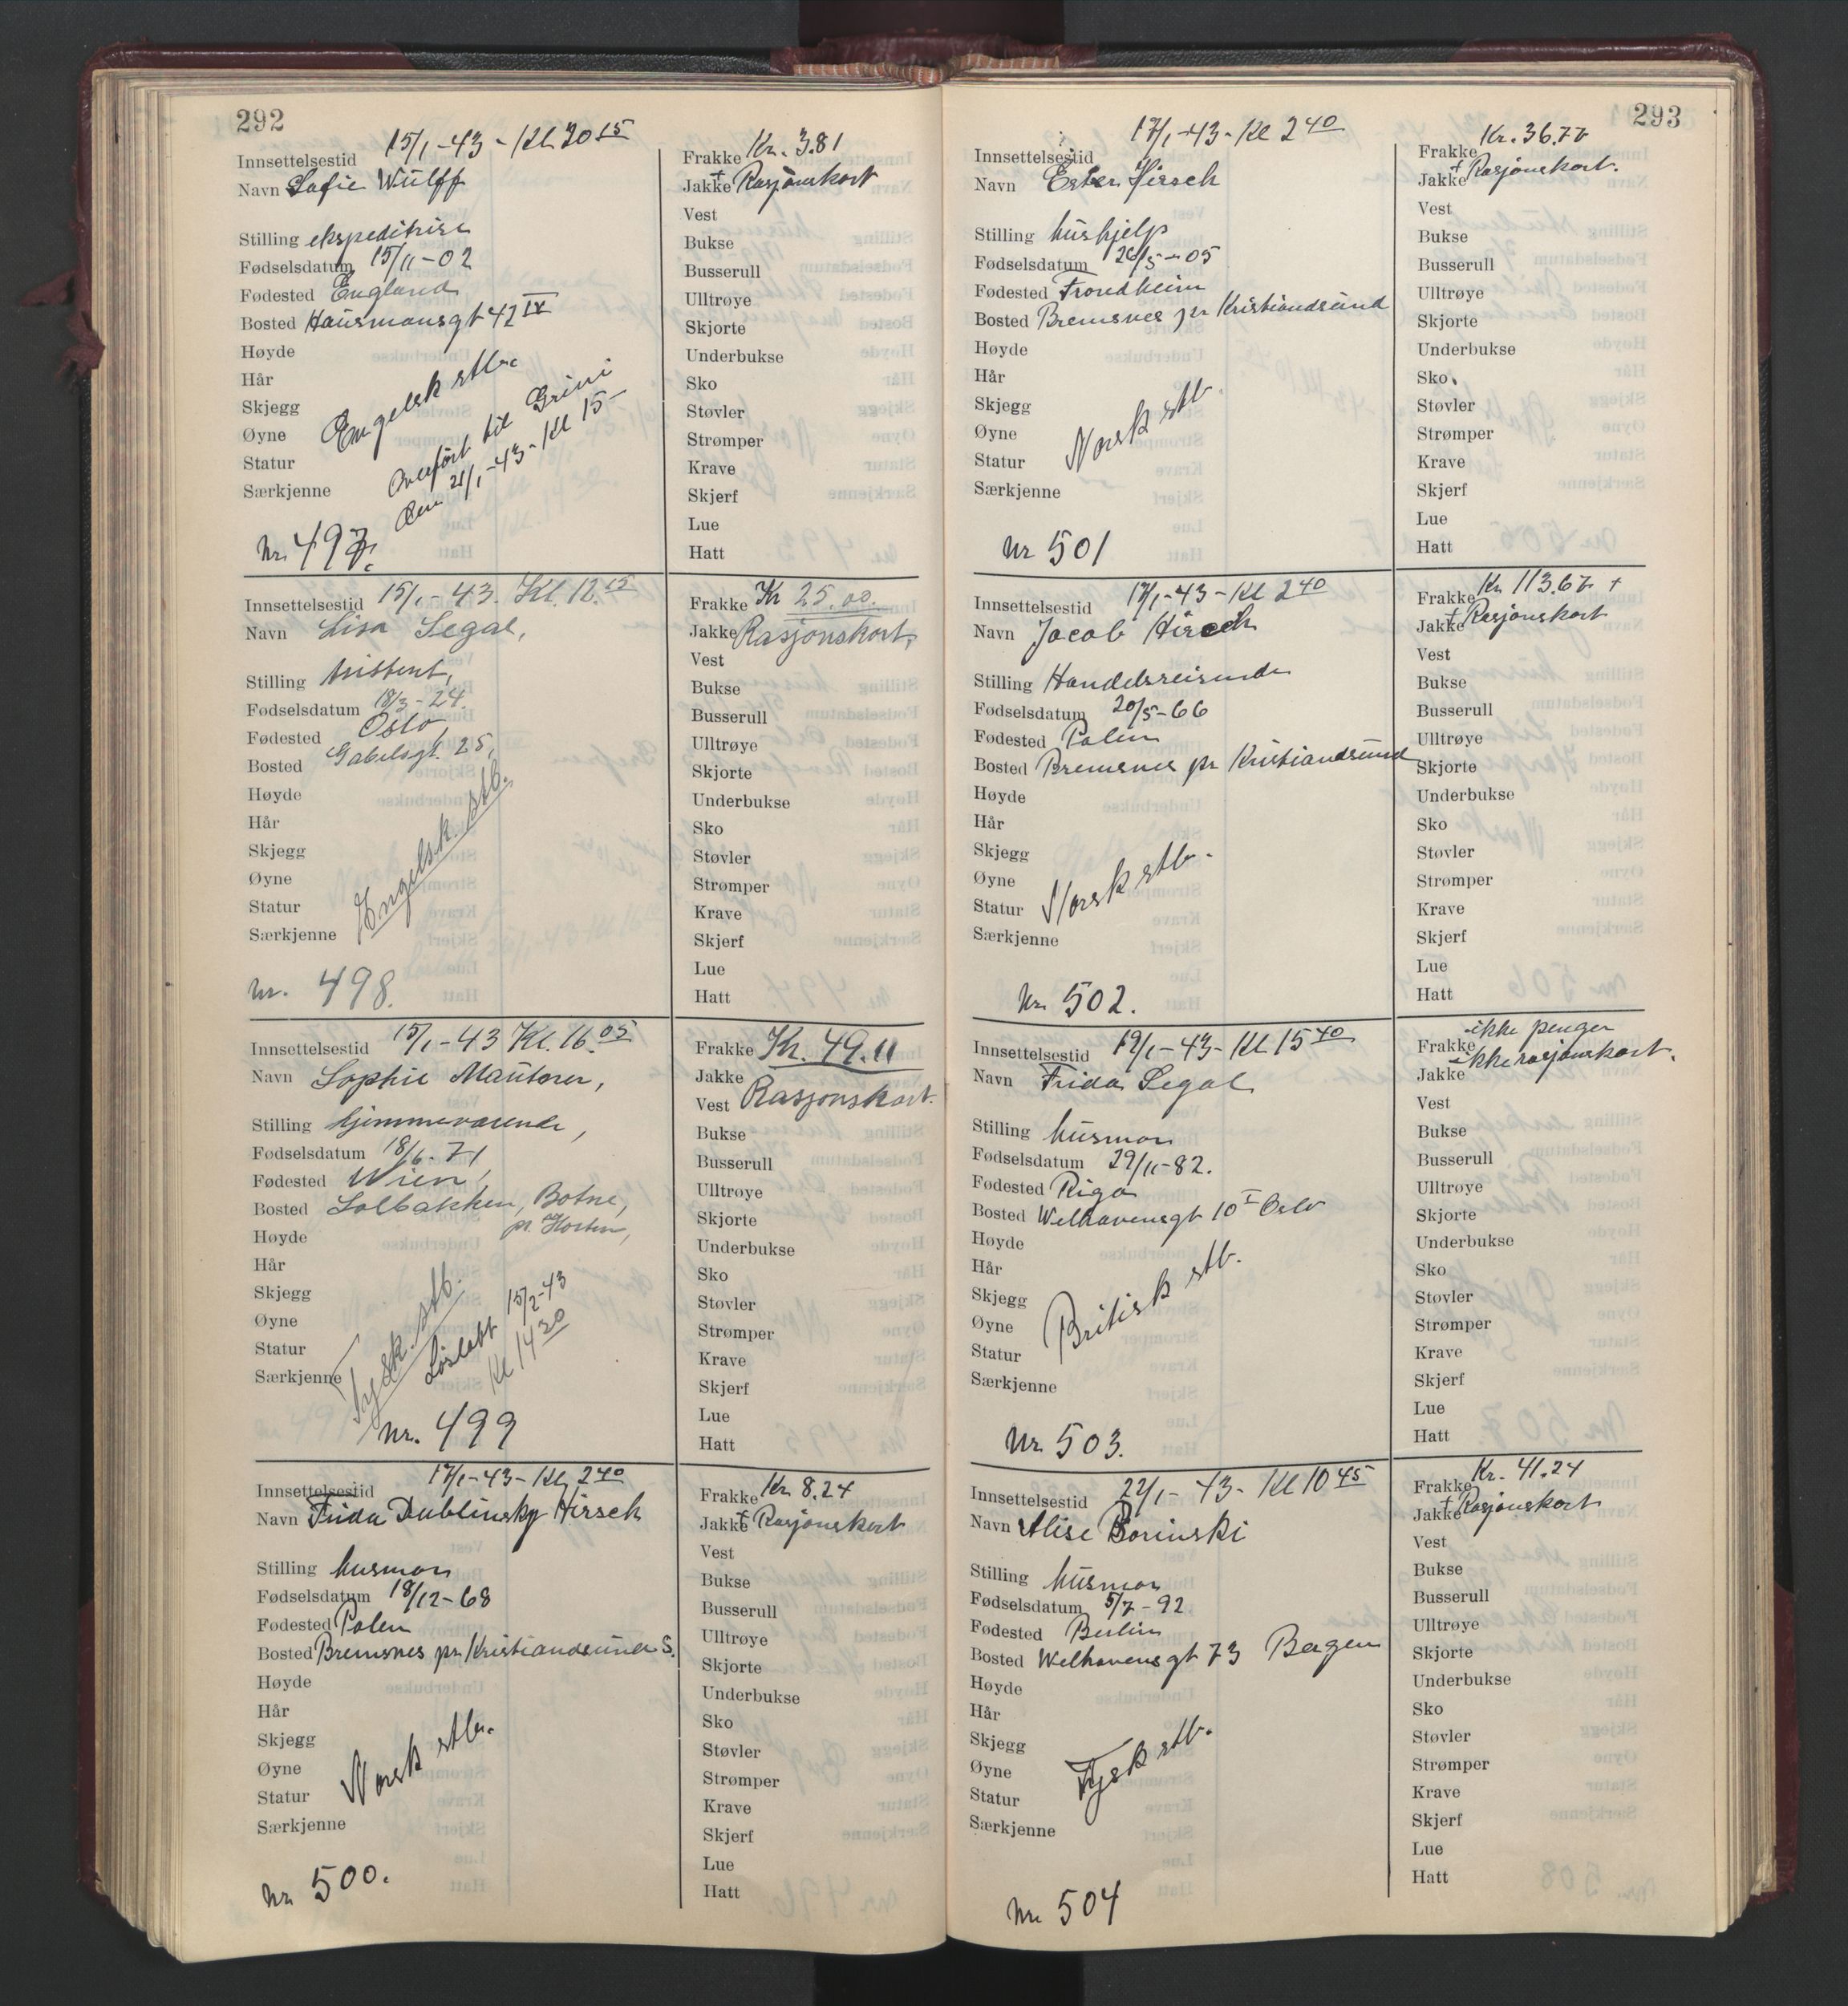 292
Innsettelsestid 15/1-43 - Kl. 20 15
Navn Sofie Wulff
Stilling ekspeditrise
Fødselsdatum 15/11-02
Fødested England
Bosted Hausmansgt 42 IV
Høyde
Hår
Skjegg
Øyne
Statur
Særkjenne
Engelsk stb.
Overført til Grini
den 21/1-43 - Kl 15-
Nr. 497.
Kr. 3.81
Frakke
Jakke + Rasjonskort
Vest
Bukse
Busserull
Ulltrøye
Skjorte
Underbukse
Sko
Støvler
Strømper
Krave
Skjerf
Lue
Hatt
Innsettelsestid 15/1-43. Kl. 12.15
Navn Lisa Segal,
Stilling
Fødselsdatum 18/3-24.
Fødested Oslo,
Bosted Gabelsgt. 25,
Høyde
Hår
Skjegg
Øyne
Statur
Særkjenne
Engelsk. stb.
Nr. 498.
Frakke Kr 25.00.
Jakke Rasjonskort,
Vest
Bukse
Busserull
Ulltrøye
Skjorte
Underbukse
Sko
Støvler
Strømper
Krave
Skjerf
Lue
Hatt
Innsettelsestid 15/1-43 Kl. 16.05
Navn Sophie Mautner,
Stilling hjemmeværende,
Fødselsdatum 18/6.71
Fødested Wien,
Bosted Solbakken, Botne,
pr. Horten,
Høyde
Hår
Skjegg
Øyne
Statur
Særkjenne
Tysk. stb.
Løslatt 15/2-43
Kl 14 20
Nr. 499
Frakke Kr. 49.11
Jakke
Vest Rasjonskort.
Bukse
Busserull
Ulltrøye
Skjorte
Underbukse
Sko
Støvler
Strømper
Krave
Skjerf
Lue
Hatt
Innsettelsestid 17/1-43 - Kl 2 40
Navn Frida Dublinsky Hirsch
Stilling husmor
Fødselsdatum 18/12-68
Fødested Polen
Bosted Bremsnes pr Kristiandsund S.
Høyde
Hår
Skjegg
Øyne
Statur
Særkjenne
Norsk stb.
Nr 500.
Frakke Kr 8.24
Jakke + Rasjonskort
Vest
Bukse
Busserull
Ulltrøye
Skjorte
Underbukse
Sko
Støvler
Strømper
Krave
Skjerf
Lue
Hatt
293
Innsettelsestid 17/1-43 - Kl 2 40
Navn Ester Hirsch
Stilling hushjelp
Fødselsdatum 26/5-05
Fødested Trondheim
Bosted Bremsnes pr Kristiandsund
Høyde
Hår
Skjegg
Øyne
Statur
Særkjenne
Norsk stb.
Nr 501
Kr. 36.77
Frakke
Jakke + Rasjonskort.
Vest
Bukse
Busserull
Ulltrøye
Skjorte
Underbukse
Sko
Støvler
Strømper
Krave
Skjerf
Lue
Hatt
Innsettelsestid 17/1-43 - Kl 2 40
Navn Jacob Hirsch
Stilling Handelsreisende
Fødselsdatum 20/5-66
Fødested Polen
Bosted Bremsnes pr Kristiandsund
Høyde
Hår
Skjegg
Øyne
Statur
Særkjenne
Norsk stb.
Nr 502.
Frakke Kr 113.67 +
Jakke + Rasjonskort
Vest
Bukse
Busserull
Ulltrøye
Skjorte
Underbukse
Sko
Støvler
Strømper
Krave
Skjerf
Lue
Hatt
Innsettelsestid 19/1-43 - Kl 15 40
Navn Frida Segal
Stilling husmor
Fødselsdatum 29/11-82.
Fødested Riga
Bosted Welhavensgt 10 I Oslo
Høyde
Hår
Skjegg
Øyne
Statur
Særkjenne
Britisk stb.
Nr 503.
ikke penger
Frakke
ikke rasjonskort.
Jakke
Vest
Bukse
Busserull
Ulltrøye
Skjorte
Underbukse
Sko
Støvler
Strømper
Krave
Skjerf
Lue
Hatt
Innsettelsestid 22/1-43 - Kl 10 45
Navn Alise Borinski
Stilling husmor
Fødselsdatum 5/7-92
Fødested Berlin
Bosted Welhavensgt 73 Bergen
Høyde
Hår
Skjegg
Øyne
Statur
Særkjenne
Tysk stb.
Nr 504
Frakke Kr. 41.24
Jakke + Rasjonskort
Vest
Bukse
Busserull
Ulltrøye
Skjorte
Underbukse
Sko
Støvler
Strømper
Krave
Skjerf
Lue
Hatt